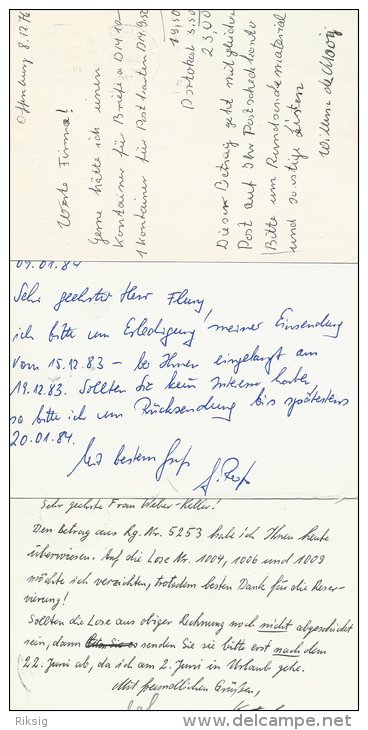 Offenburg 8.12.76
Werte Firma!
Gerne hätte ich einen
Kontainer für Briefe a DM 10
1 Kontainer für Postkarten DM 9,50
19,50
Portokost 3,50
23,00
Dieser Betrag geht mit gleicher
Post auf Ihr Postscheckkonto
Bitte um Rundsendematerial
und sonstige Listen
09.01.84
Sehr geehrter Herr Fluny,
ich bitte um Erledigung meiner Einsendung
vom 15.12.83 – bei Ihnen eingelangt am
19.12.83. Sollten Sie kein Interesse haben,
so bitte ich um Rücksendung bis spätestens
20.01.84.
Mit bestem Gruß
Sehr geehrte Frau Weber-Keller!
Den Betrag aus Rg. Nr. 5253 habe ich Ihnen heute
überwiesen. Auf die Lose Nr. 1004, 1006 und 1009
möchte ich verzichten, trotzdem besten Dank für die Reser-
vierung!
Sollten die Lose aus obiger Rechnung noch nicht abgeschickt
sein, dann senden Sie sie bitte erst nach dem
22. Juni ab, da ich am 2. Juni in Urlaub gehe.
Mit freundlichen Grüßen,
Riksig
delcampe.net